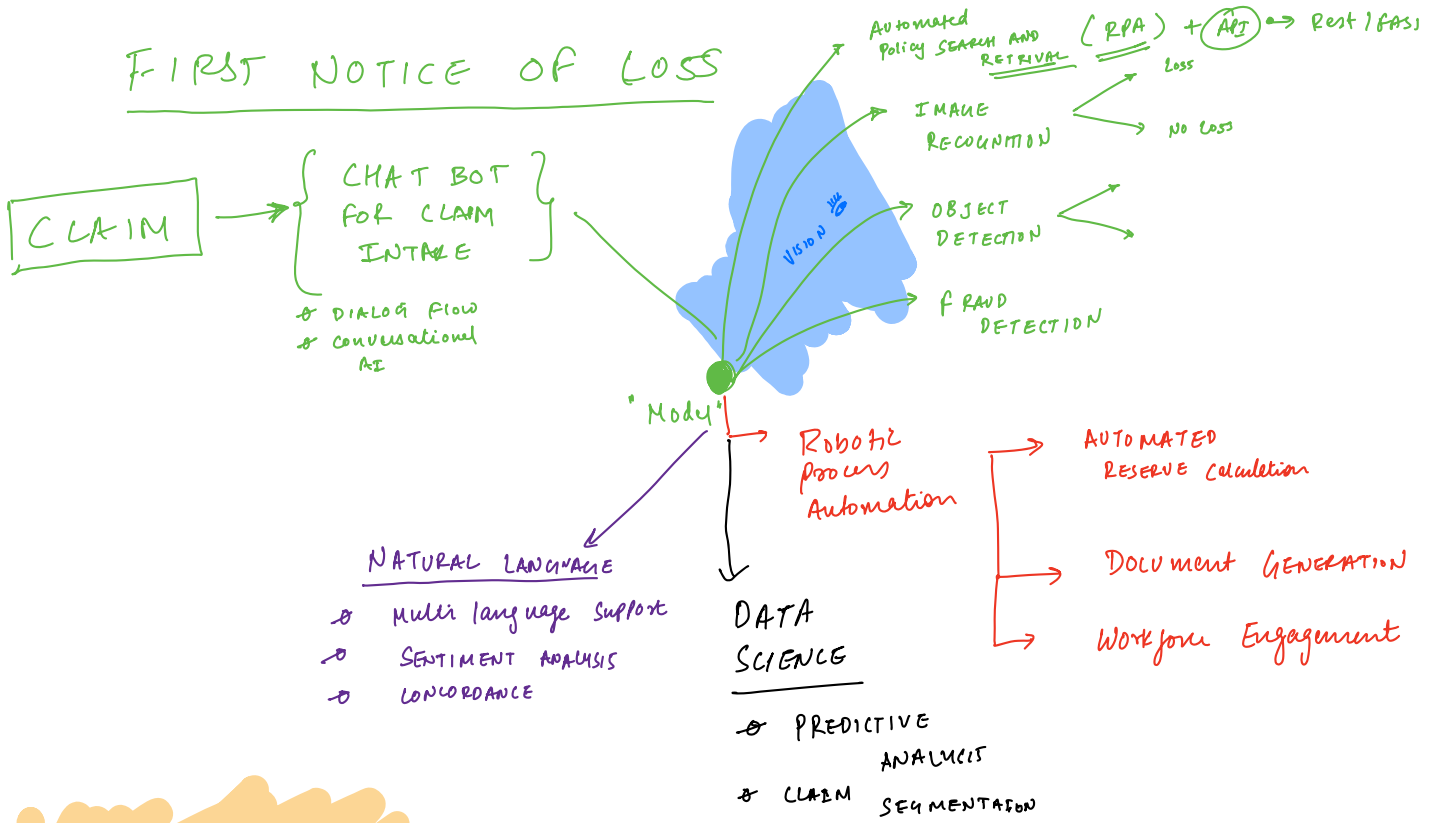 FIRST NOTICE OF LOSS
CLAIM
CHAT BOT
FOR CLAIM
INTAKE
DIALOG FLOW
CONVERSATIONAL
AI
Automated
Policy SEARCH AND
RETRIVAL
(RPA) + API
Rest /
IMAGE
RECOGNITION
Loss
NO LOSS
VISION
OBJECT
DETECTION
FRAUD
DETECTION
"Model"
Robotic
Process
Automation
AUTOMATED
RESERVE Calculation
DOCUMENT GENERATION
Workforce Engagement
NATURAL LANGUAGE
Multi language Support
SENTIMENT ANALYSIS
CONCORDANCE
DATA
SCIENCE
PREDICTIVE
ANALYSIS
CLAIM SEGMENTATION